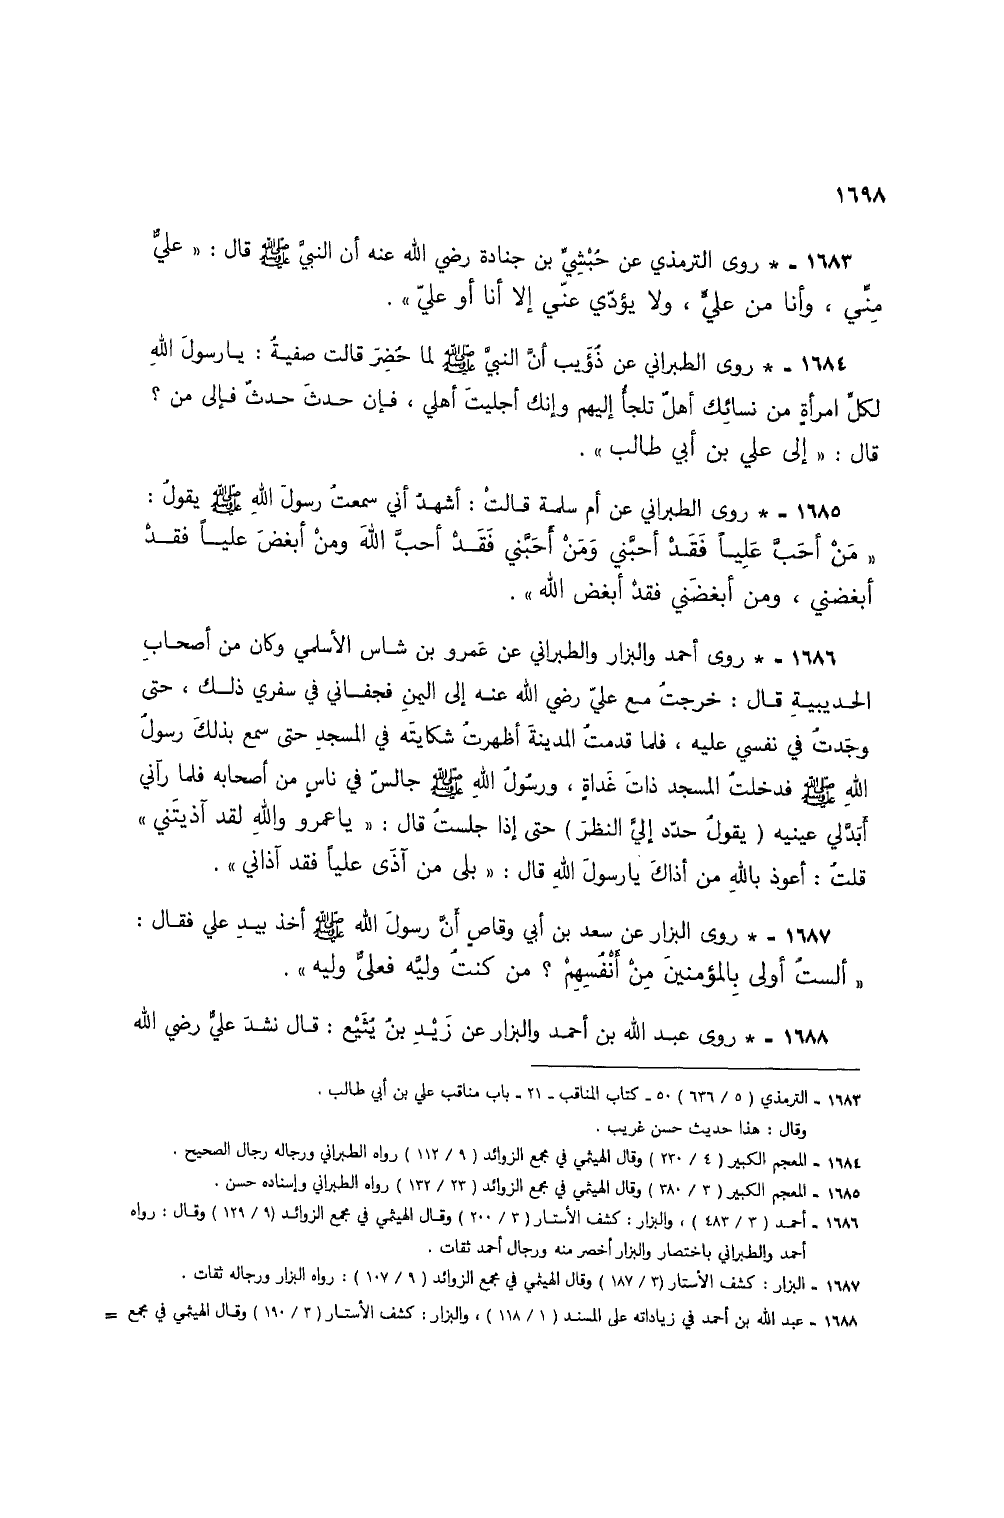 ١٦٩٨
١٦٨٣ - * روى الترمذي عن حُبْشِيِّ بن جنادة رضي الله عنه أن النبيَّ ﷺ قال : « عليٌّ
مِنِّي ، وأنا من عليٍّ ، ولا يؤدّي عنّي إلا أنا أو عليّ » .
١٦٨٤ - * روى الطبراني عن ذُؤَيب أنَّ النبيَّ ﷺ لما حُضِرَ قالت صفيةُ : يارسولَ اللهِ
لكلِّ امرأةٍ من نسائِك أهلٌ تلجأُ إليهم وإنك أجليتَ أهلي ، فإن حدثَ حدثٌ فإلى من ؟
قال : « إلى علي بن أبي طالب » .
١٦٨٥ - * روى الطبراني عن أم سلمة قالتْ : أشهدُ أني سمعتُ رسولَ اللهِ ﷺ يقولُ :
« مَنْ أحَبَّ عَلِياً فَقَدْ أحبَّني وَمَنْ أَحَبَّني فَقَدْ أحبَّ اللهَ ومنْ أبغضَ علياً فقدْ
أبغضني ، ومن أبغضَني فقدْ أبغض الله » .
١٦٨٦ - * روى أحمد والبزار والطبراني عن عَمرو بن شاس الأسلمي وكان من أصحابِ
الحديبيةِ قال : خرجتُ مع عليّ رضي الله عنه إلى اليمنِ فجفاني في سفري ذلك ، حتى
وجَدتُ في نفسي عليه ، فلما قدمتُ المدينةَ أظهرتُ شكايتَه في المسجدِ حتى سمع بذلكَ رسولُ
اللهِ ﷺ فدخلتُ المسجد ذاتَ غَداةٍ ، ورسُولُ اللهِ ﷺ جالسٌ في ناسٍ من أصحابه فلما رآني
أَبَدَّلي عينيه ( يقولُ حدّد إليَّ النظرَ ) حتى إذا جلستُ قال : « ياعمرو واللهِ لقد آذيتَني »
قلتُ : أعوذ باللهِ من أذاكَ يارسولَ اللهِ قال : « بلى من آذَى علياً فقد آذاني » .
١٦٨٧ - * روى البزار عن سعد بن أبي وقاصٍ أَنَّ رسولَ الله ﷺ أخذ بيدِ علي فقال :
« ألستُ أولى بِالمؤمنينَ مِنْ أَنْفُسِهِمْ ؟ من كنتُ وليَّه فعليٌّ وليه » .
١٦٨٨ - * روى عبد الله بن أحمد والبزار عن زَيْدِ بنُ يُثَيْع : قال نشدَ عليٌّ رضي الله
١٦٨٣ - الترمذي ( ٥ / ٦٣٦ ) ٥٠ - كتاب المناقب - ٢١ - باب مناقب علي بن أبي طالب .
وقال : هذا حديث حسن غريب .
١٦٨٤ - المعجم الكبير ( ٤ / ٢٣٠ ) وقال الهيثمي في مجمع الزوائد ( ٩ / ١١٢ ) رواه الطبراني ورجاله رجال الصحيح .
١٦٨٥ - المعجم الكبير ( ٣ / ٣٨٠ ) وقال الهيثمي في مجمع الزوائد ( ٢٣ / ١٣٢ ) رواه الطبراني وإسناده حسن .
١٦٨٦ - أحمد ( ٣ / ٤٨٣ ) ، والبزار : كشف الأستار ( ٣ / ٢٠٠ ) وقال الهيثمي في مجمع الزوائد (٩ / ١٢٩ ) وقال : رواه
أحمد والطبراني باختصار والبزار أخصر منه ورجال أحمد ثقات .
١٦٨٧ - البزار : كشف الأستار (٣ / ١٨٧ ) وقال الهيثمي في مجمع الزوائد ( ٩ / ١٠٧ ) : رواه البزار ورجاله ثقات .
١٦٨٨ - عبد الله بن أحمد في زياداته على المسند ( ١ / ١١٨ ) ، والبزار : كشف الأستار ( ٣ / ١٩٠ ) وقال الهيثمي في مجمع =